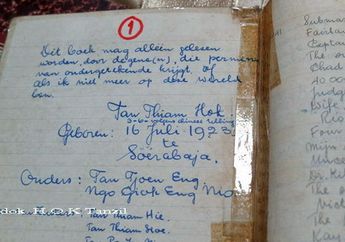 1
Dit boek mag alleen gelezen
worden, door degene(n), die permissie
van ondergetekende krijgt, of
als ik niet meer op deze wereld
ben.
Tan Thiam Hok
3-6- volgens chinese telling
Geboren: 16 Juli 1923
te
Soerabaja.
Ouders: Tan Tjoen Eng
Ngo Giok Eng Nio
dok. H.O.K Tanzil
Tan Thiam Hie.
Tan Thiam
Submar
Fairlan
Captai
The
40 00
Judg
Wife
Rio
Four
Mijn
The
The
The
Kay